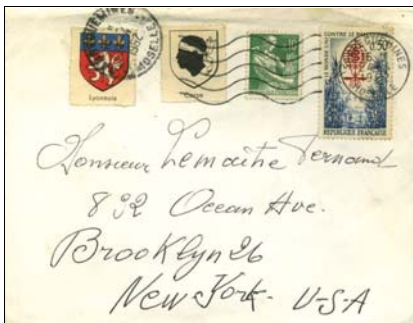 MOSELLE
Lyonnais
Corse
CONTRE LE PALUDISME
0,50
RÉPUBLIQUE FRANÇAISE
Monsieur Lemaitre Fernand
832 Ocean Ave.
Brooklyn 26
New York. U-S-A